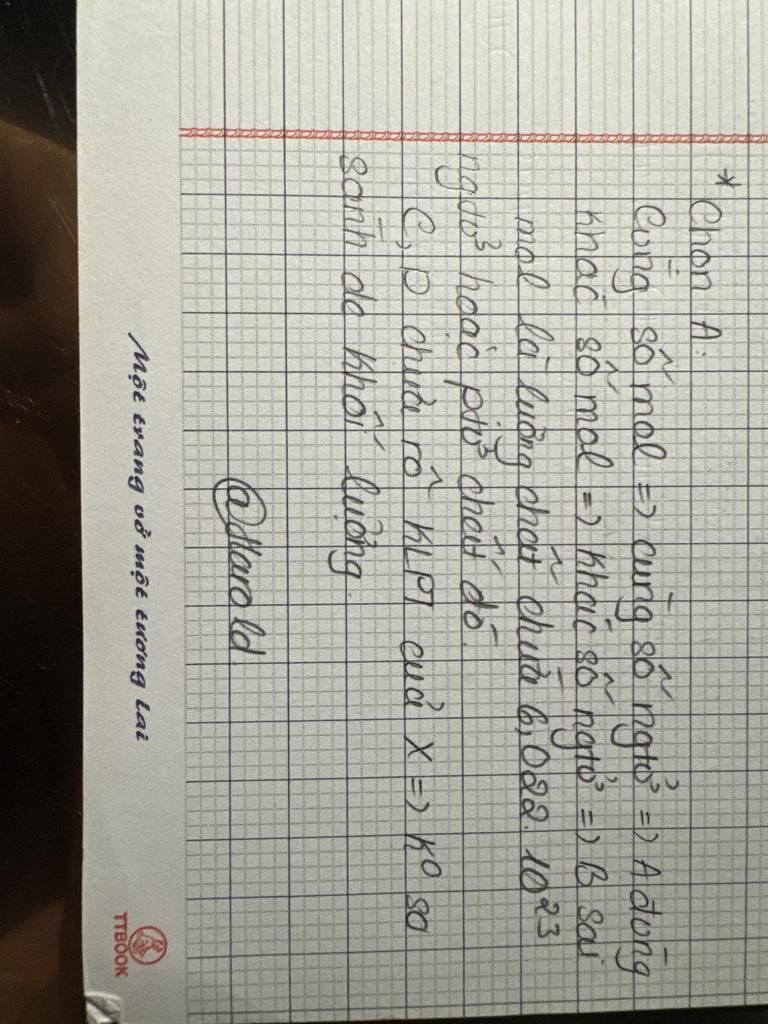 * Chọn A:
Cùng số mol => cùng số ngtử => A đúng
Khác số mol => khác số ngtử => B sai
mol là lượng chất chứa 6,022.10²³
ngtử hoặc ptử chất đó.
C, D chưa rõ KLPT của X => k⁰ so
sánh đc khối lượng.
@Harold.
Một trang vở một tương lai
TTBOOK